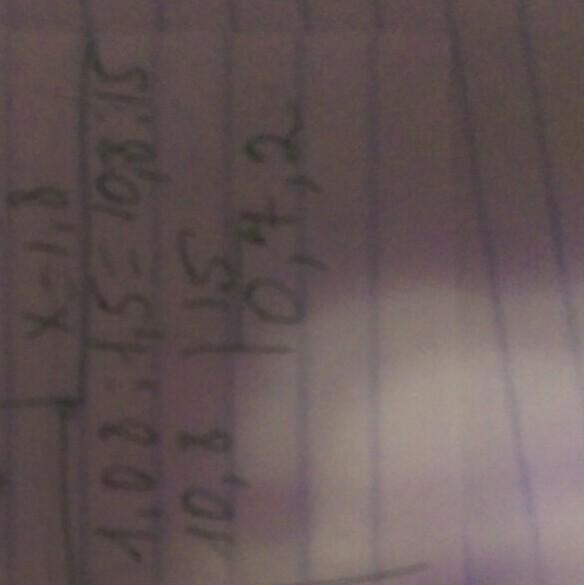 x=1,8
1,08:1,5=10,8:15
10,8 | 15
0,7,2